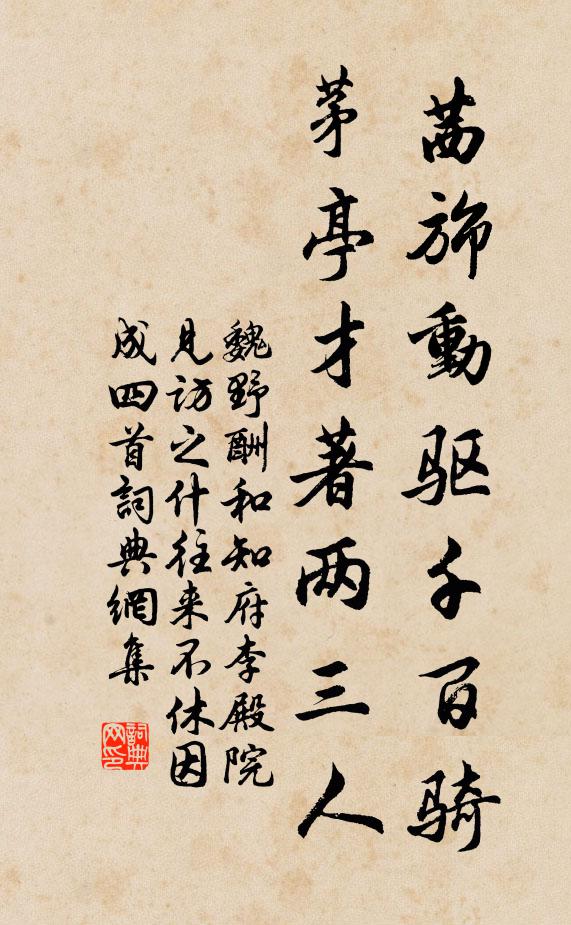 茜斾動驱千百骑
茅亭才著两三人
魏野酬和知府李殿院
見訪之什往来不休因
成四首詞典網集
詞典
网印